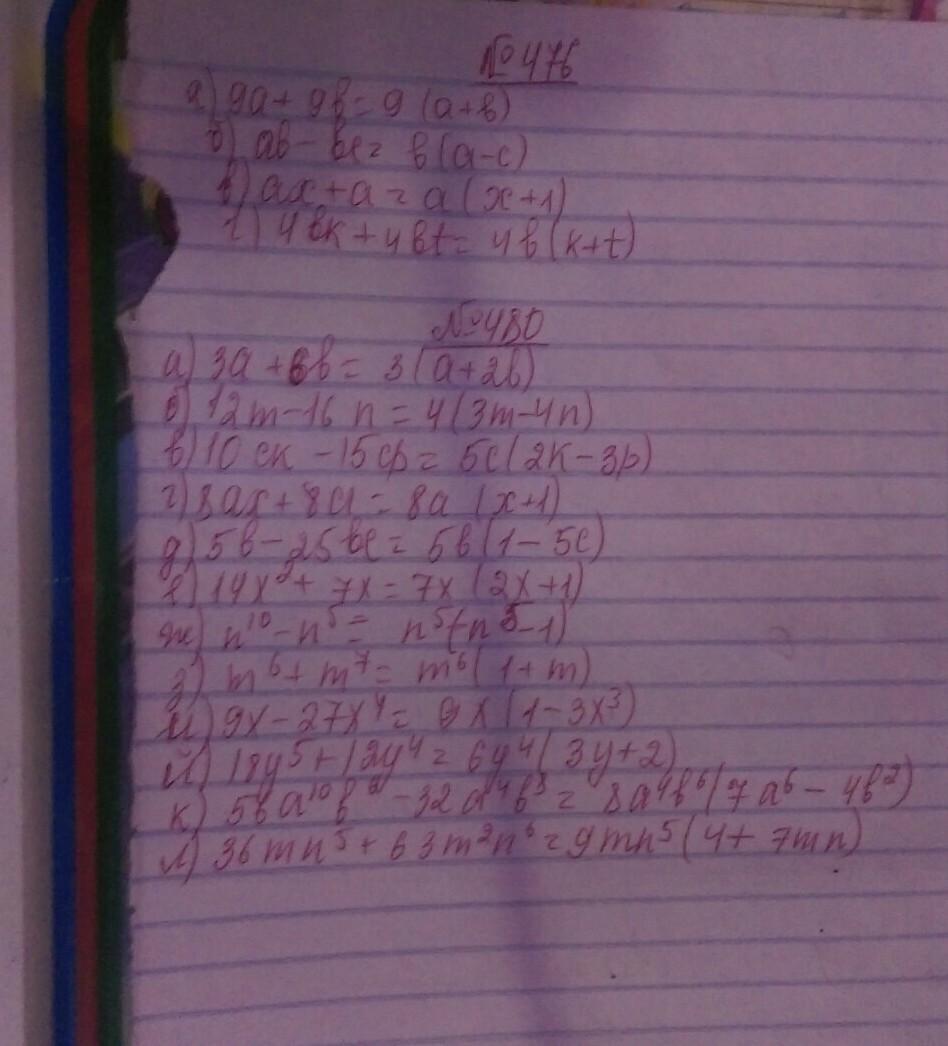 №476
а) 9a + 9b = 9 (a+b)
б) ab - bc = b(a-c)
в) ax + a = a (x+1)
г) 4bk + 4bt = 4b(k+t)
№480
а) 3a + 6b = 3 (a+2b)
б) 12m - 16 n = 4(3m-4n)
в) 10 ck - 15cp = 5c(2k-3p)
г) 8ax + 8a = 8a (x+1)
д) 5b - 25bc = 5b(1-5c)
е) 14x² + 7x = 7x (2x+1)
ж) n¹⁰ - n⁵ = n⁵(n⁵-1)
з) m⁶ + m⁷ = m⁶(1+m)
и) 9x - 27x⁴ = 9x (1-3x³)
й) 18y⁵ + 12y⁴ = 6y⁴(3y+2)
к) 56a¹⁰b⁶ - 32a⁴b⁸ = 8a⁴b⁶(7a⁶ - 4b²)
л) 36mn⁵ + 63m²n⁶ = 9mn⁵(4+7mn)